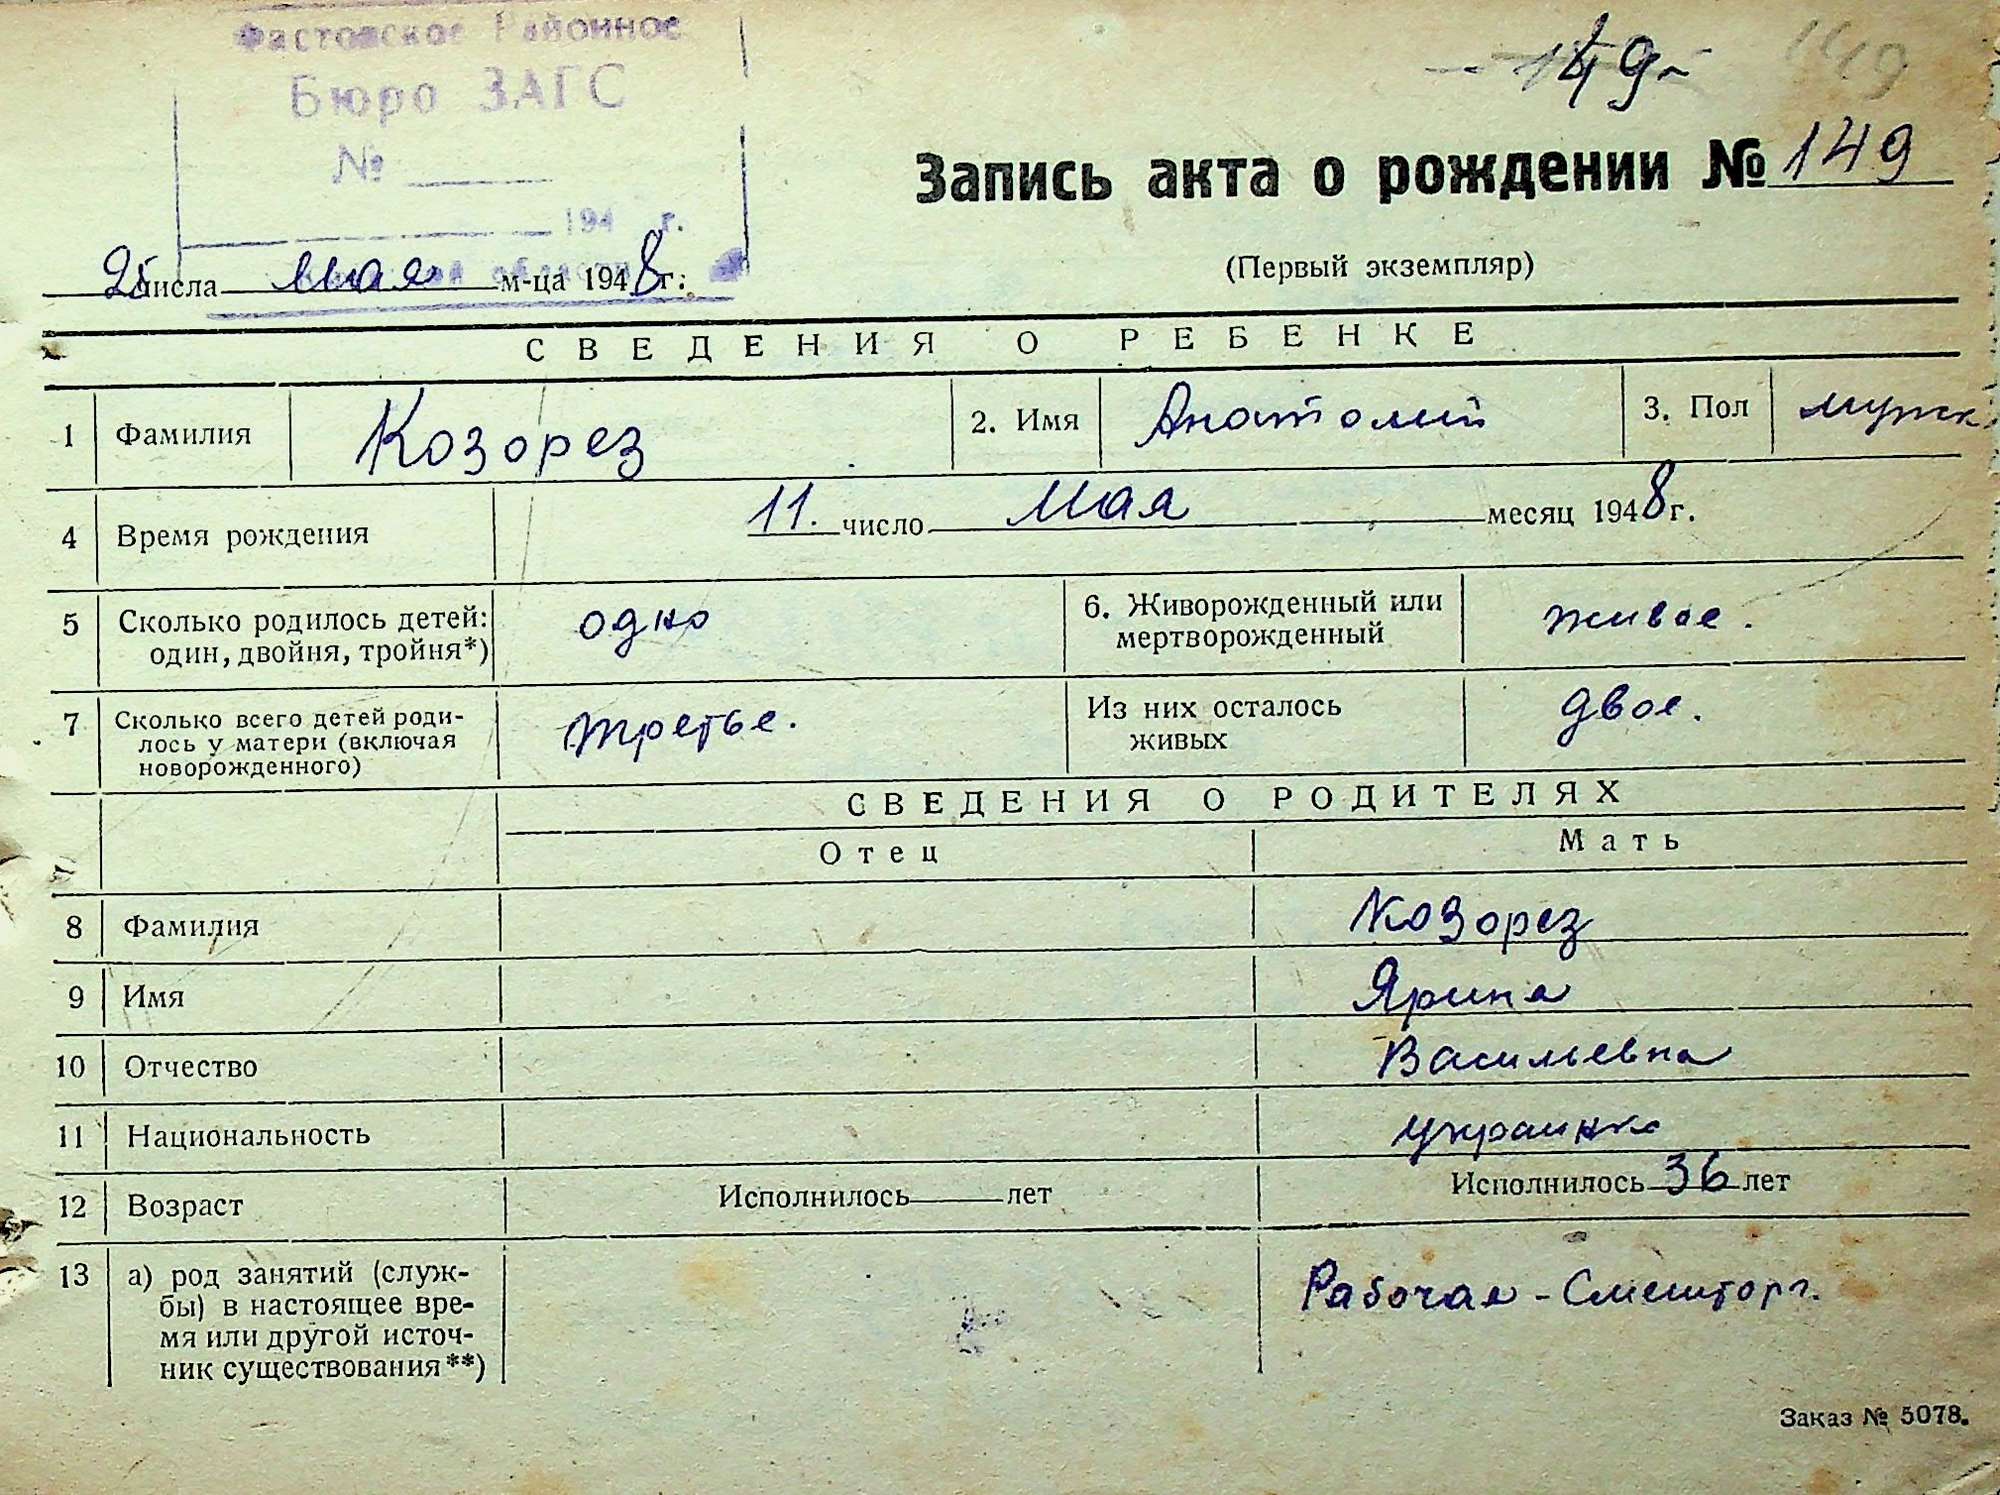 Фастовское Районное
Бюро ЗАГС
№
194 г.
области
149
149
Запись акта о рождении № 149
(Первый экземпляр)
25 числа мая м-ца 1948 г.
СВЕДЕНИЯ О РЕБЕНКЕ
1 Фамилия Козорез 2. Имя Анатолий 3. Пол мужск
4 Время рождения 11. число мая месяц 1948 г.
5 Сколько родилось детей: один, двойня, тройня*) одно 6. Живорожденный или мертворожденный живое.
7 Сколько всего детей роди-
лось у матери (включая
новорожденного) третье. Из них осталось живых двое.
СВЕДЕНИЯ О РОДИТЕЛЯХ
Отец Мать
8 Фамилия Козорез
9 Имя Ярина
10 Отчество Васильевна
11 Национальность украинка
12 Возраст Исполнилось лет Исполнилось 36 лет
13 а) род занятий (служ-
бы) в настоящее вре-
мя или другой источ-
ник существования**) Рабочая -
Заказ № 5078.